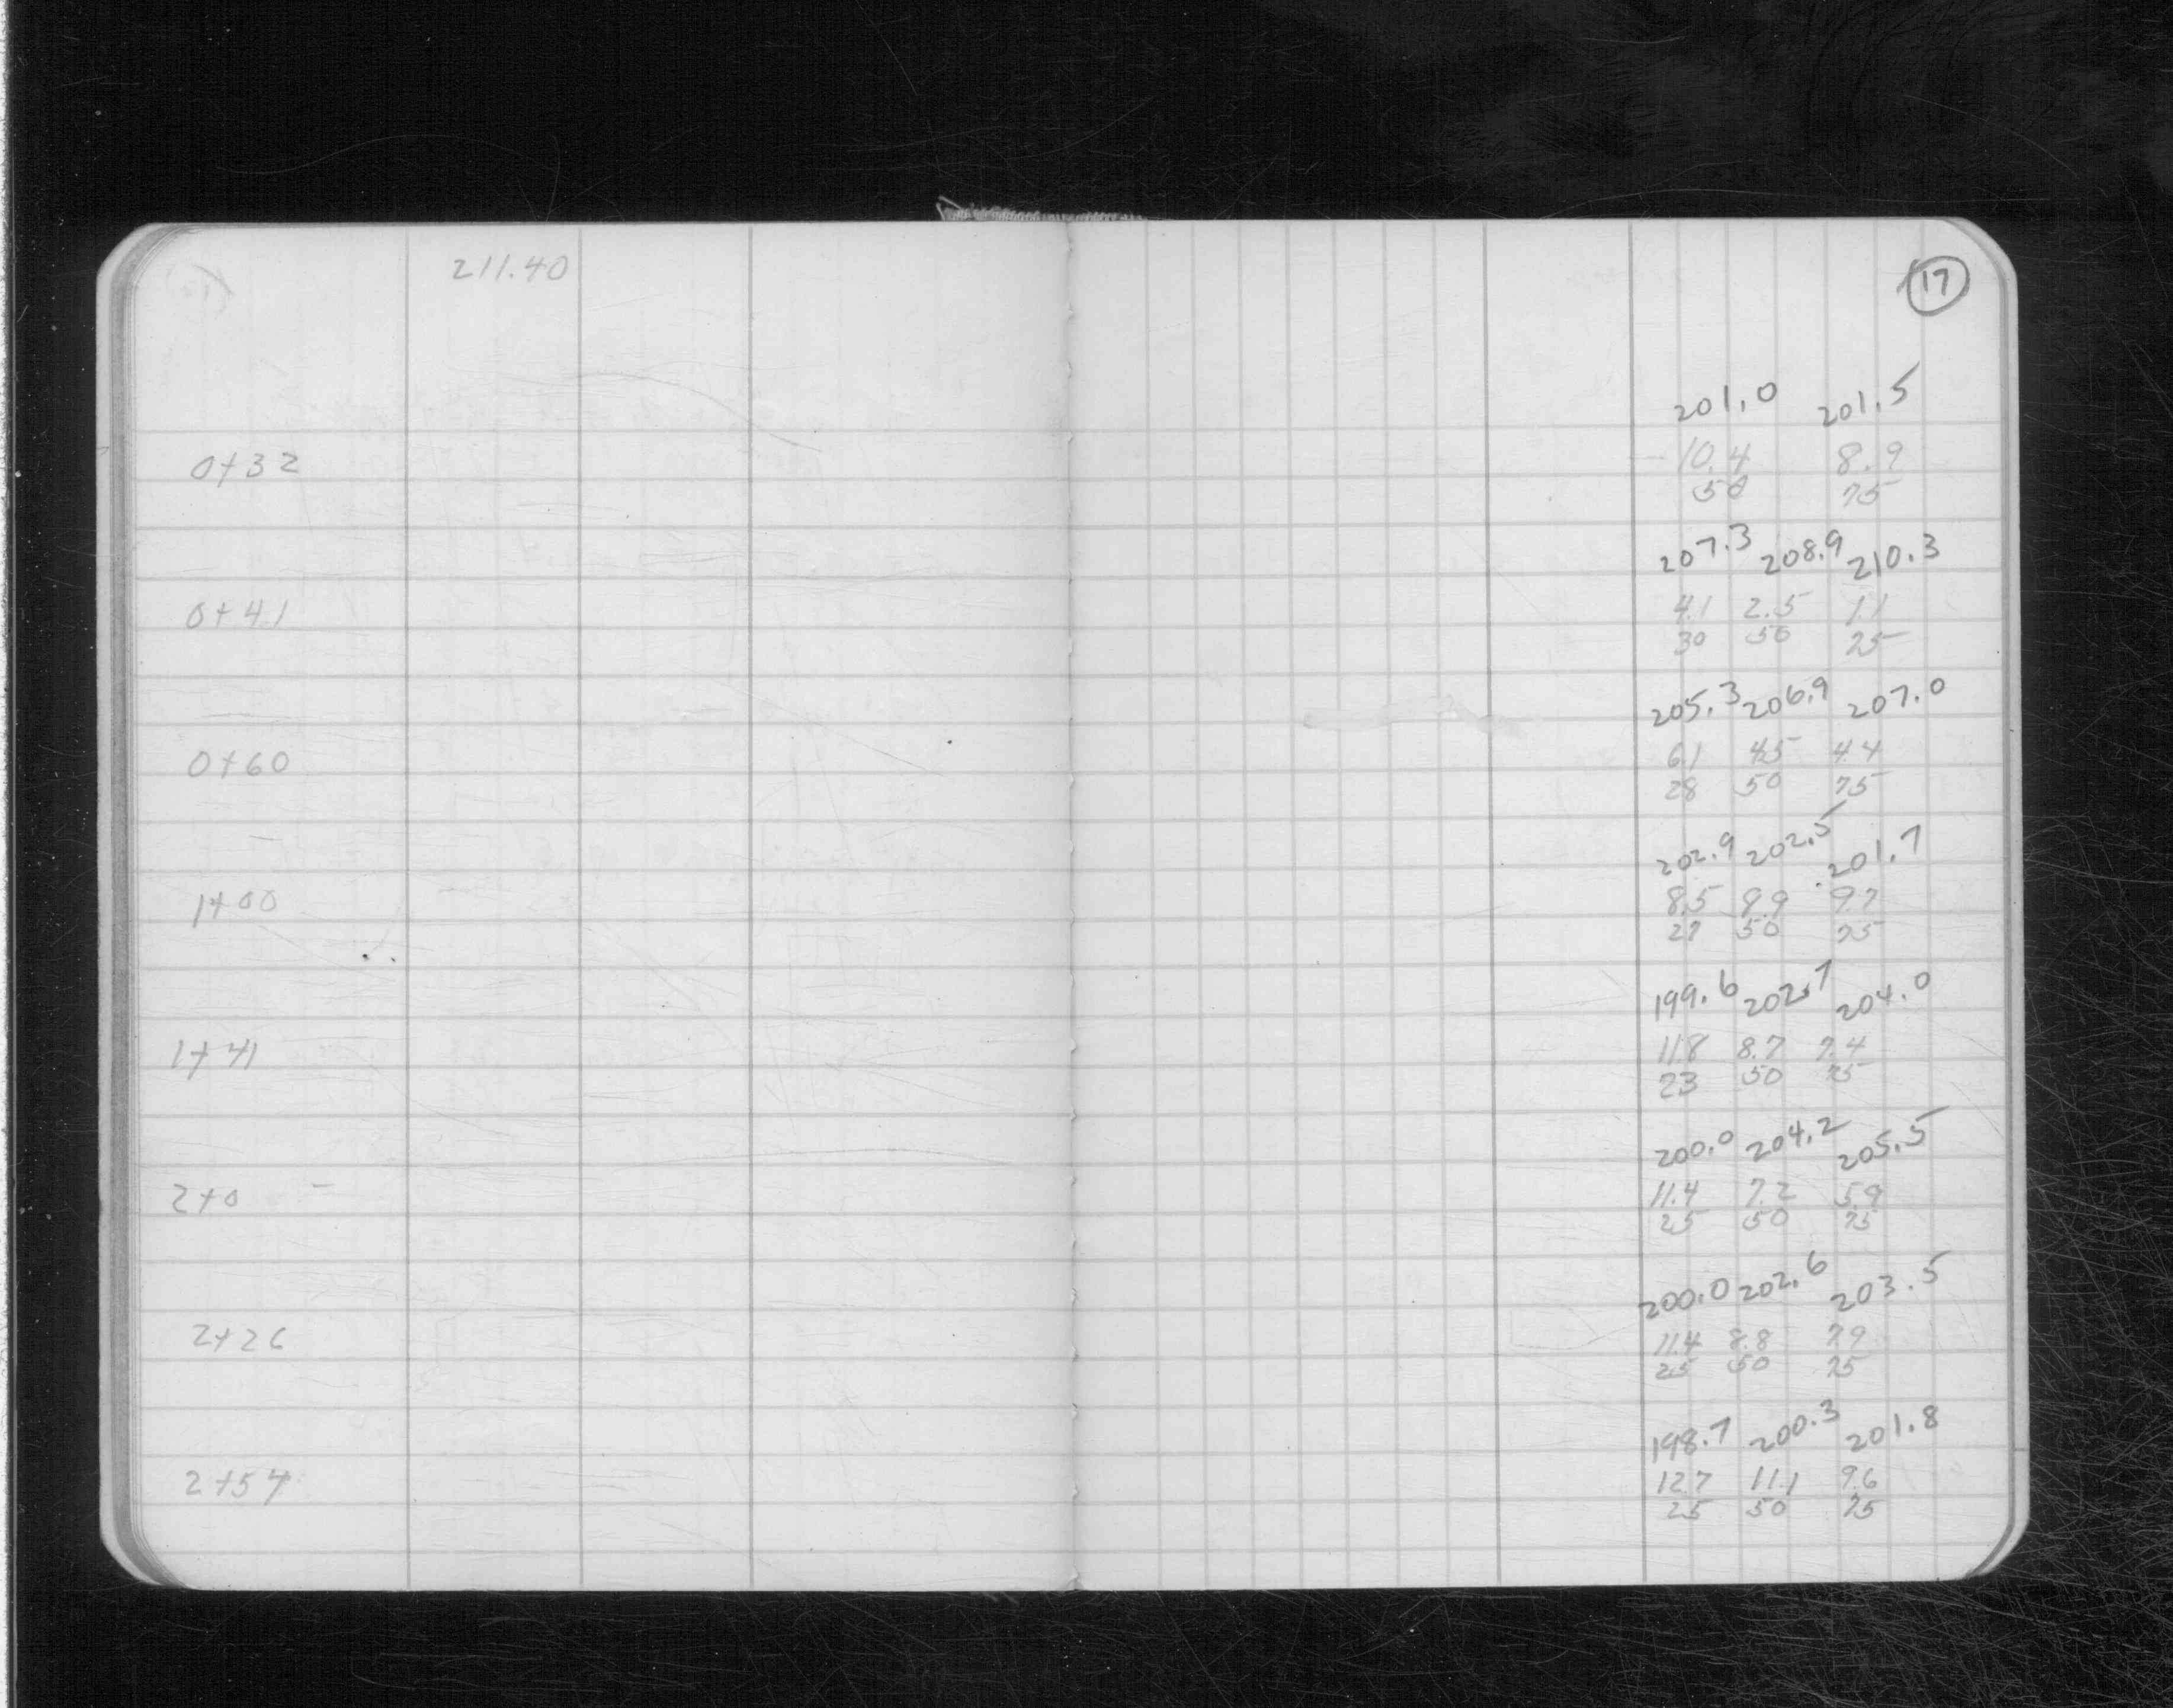 211.40
17
201.0 201.5
0+32 10.4 8.9
50 75
207.3 208.9 210.3
0+41 4.1 2.5 1.1
30 50 75
205.3 206.9 207.0
0+60 6.1 4.5 4.4
28 50 75
202.9 202.5 201.7
1+00 8.5 8.9 9.7
27 50 75
199.6 202.7 204.0
1+41 11.8 8.7 7.4
23 50 75
200.0 204.2 205.5
2+0 11.4 7.2 5.9
25 50 75
200.0 202.6 203.5
2+26 11.4 8.8 7.9
25 50 75
198.7 200.3 201.8
2+54 12.7 11.1 9.6
25 50 75